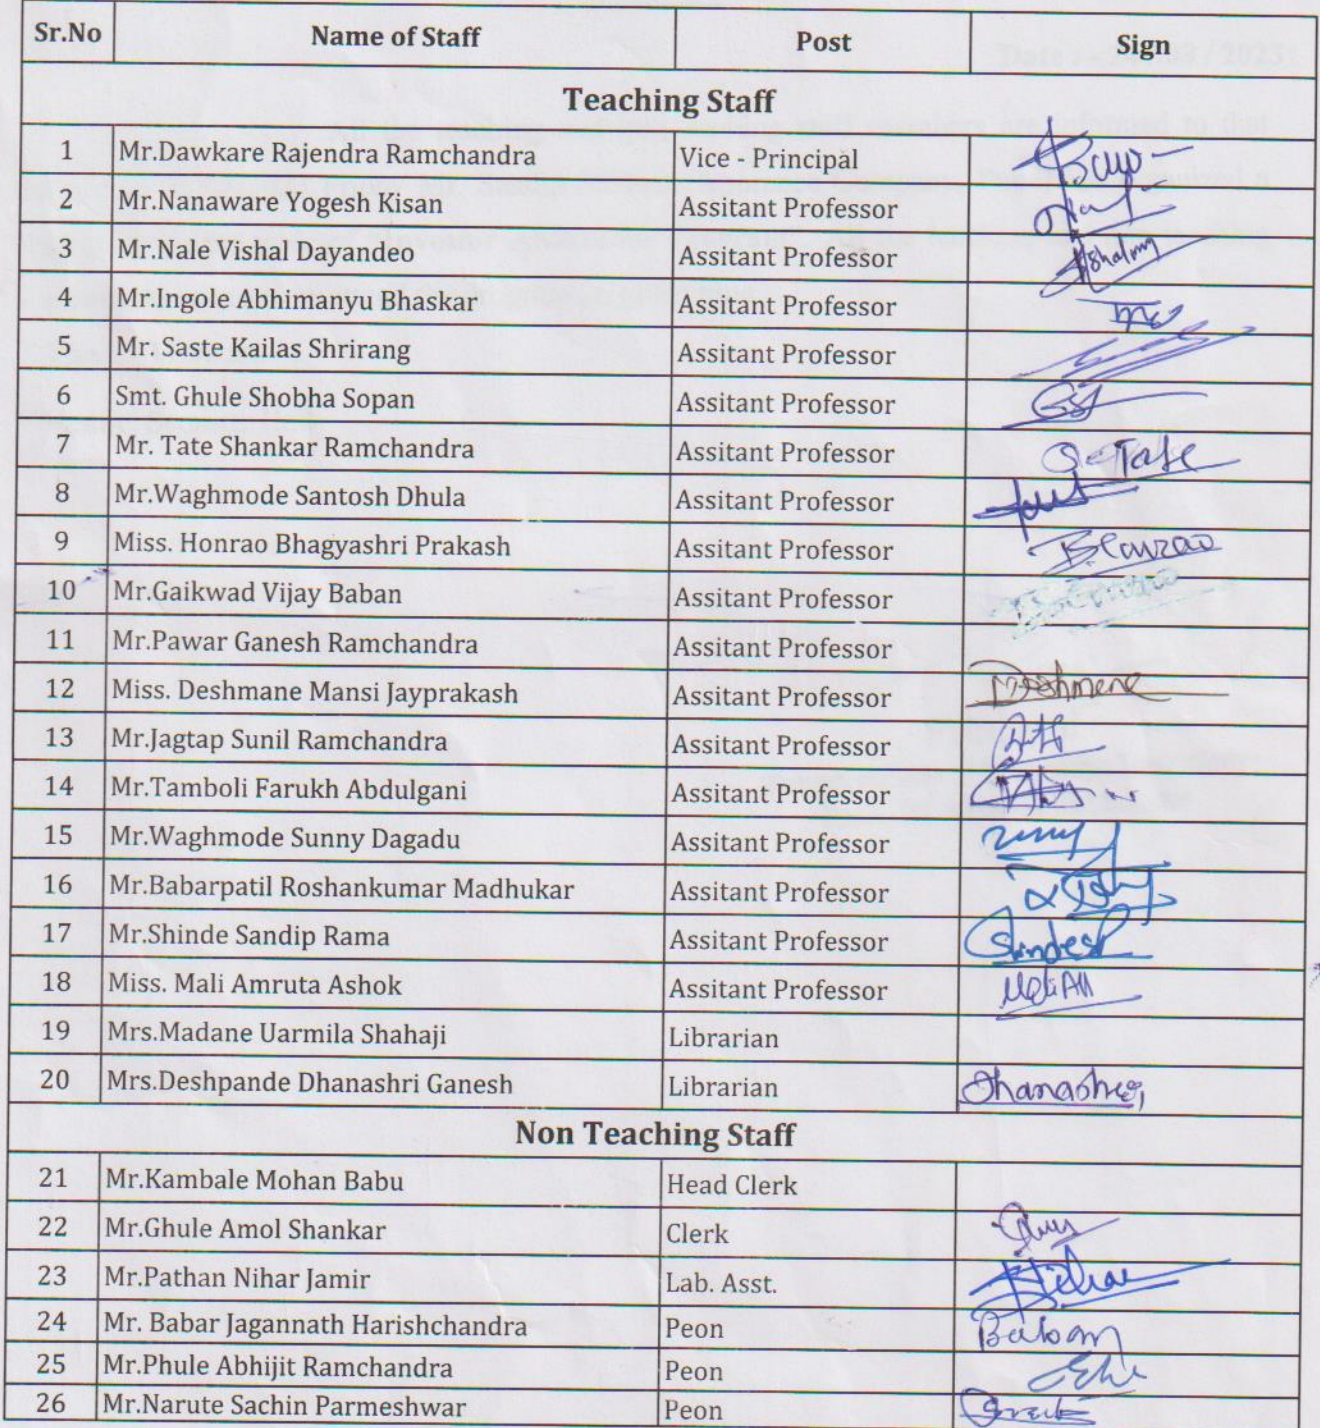 Sr.No Name of Staff Post Sign
Teaching Staff
1 Mr.Dawkare Rajendra Ramchandra Vice - Principal
2 Mr.Nanaware Yogesh Kisan Assitant Professor
3 Mr.Nale Vishal Dayandeo Assitant Professor
4 Mr.Ingole Abhimanyu Bhaskar Assitant Professor
5 Mr. Saste Kailas Shrirang Assitant Professor
6 Smt. Ghule Shobha Sopan Assitant Professor
7 Mr. Tate Shankar Ramchandra Assitant Professor Tate
8 Mr.Waghmode Santosh Dhula Assitant Professor
9 Miss. Honrao Bhagyashri Prakash Assitant Professor
10 Mr.Gaikwad Vijay Baban Assitant Professor
11 Mr.Pawar Ganesh Ramchandra Assitant Professor
12 Miss. Deshmane Mansi Jayprakash Assitant Professor
13 Mr.Jagtap Sunil Ramchandra Assitant Professor
14 Mr.Tamboli Farukh Abdulgani Assitant Professor
15 Mr.Waghmode Sunny Dagadu Assitant Professor
16 Mr.Babarpatil Roshankumar Madhukar Assitant Professor
17 Mr.Shinde Sandip Rama Assitant Professor
18 Miss. Mali Amruta Ashok Assitant Professor
19 Mrs.Madane Uarmila Shahaji Librarian
20 Mrs.Deshpande Dhanashri Ganesh Librarian
Non Teaching Staff
21 Mr.Kambale Mohan Babu Head Clerk
22 Mr.Ghule Amol Shankar Clerk
23 Mr.Pathan Nihar Jamir Lab. Asst.
24 Mr. Babar Jagannath Harishchandra Peon
25 Mr.Phule Abhijit Ramchandra Peon
26 Mr.Narute Sachin Parmeshwar Peon